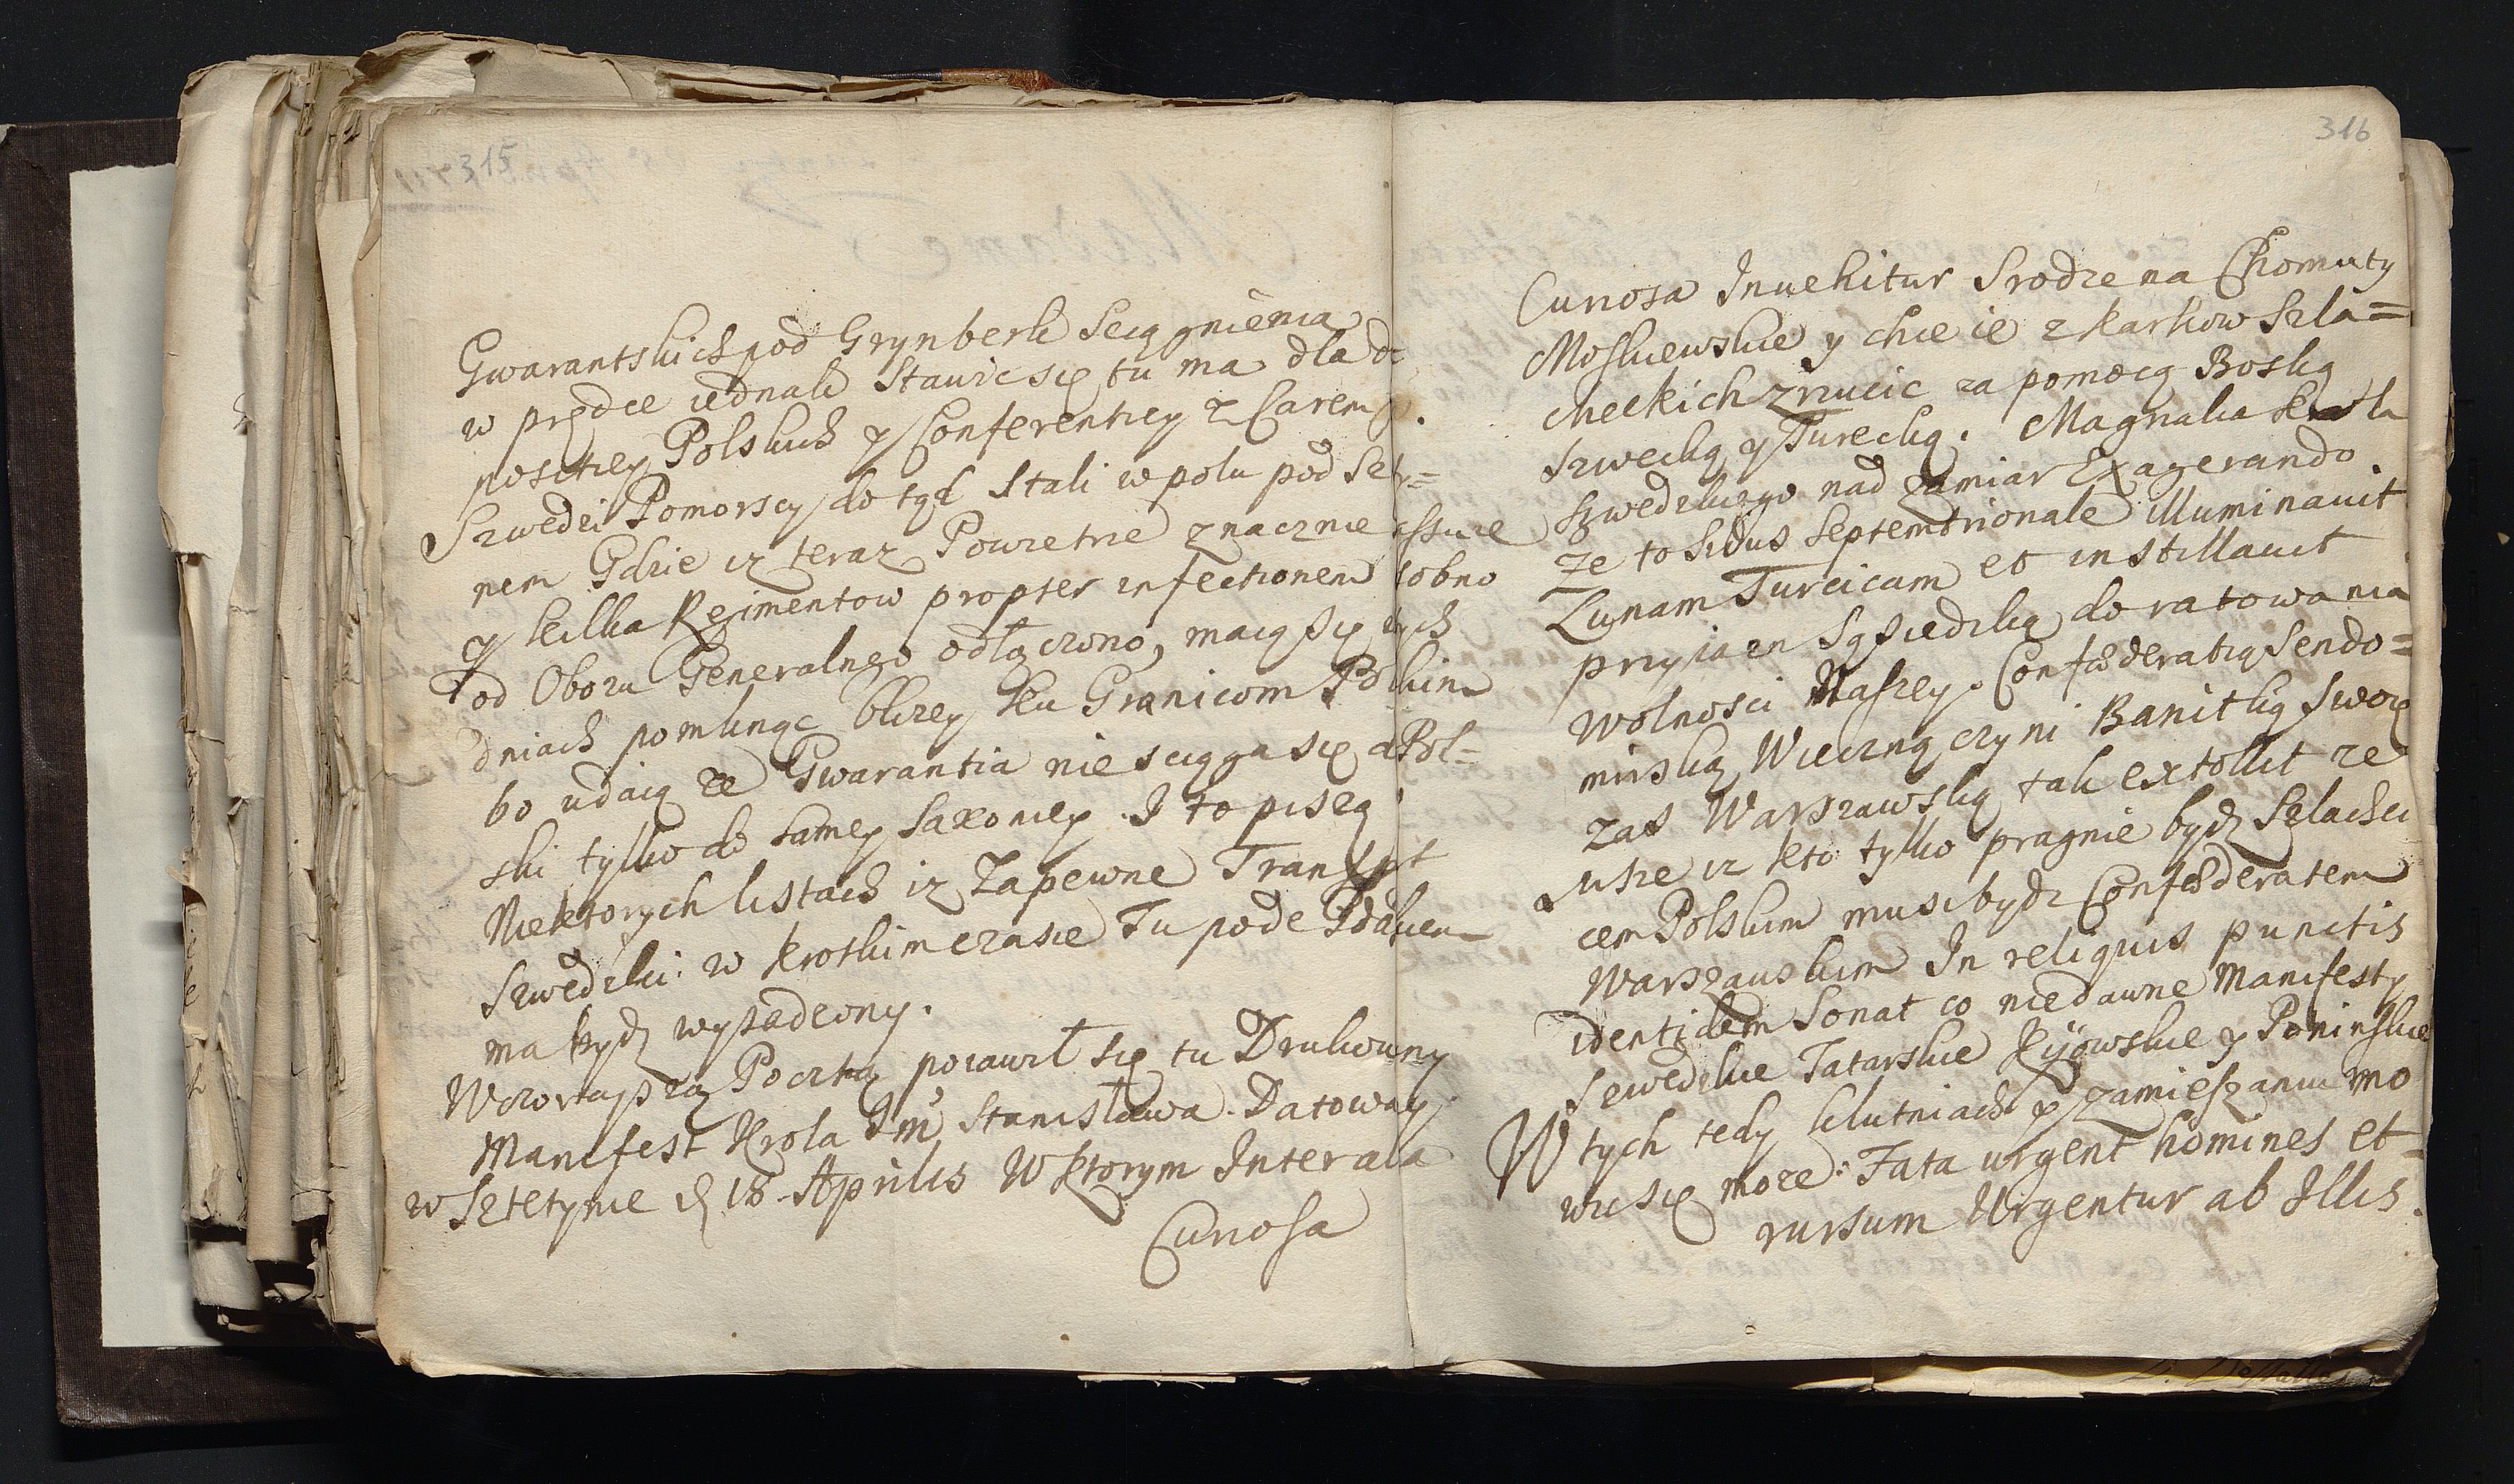 315
Gwarantskich pod Grynberk sciągnienia
w prędce iednak stawic się tu ma dla
noscией Polskich y Conferentiey z Carem
Szwedzi Pomorscy do tąd stali w polu pod Szty=
nem Gdzie iz teraz Powietrze znacznie
y kilka Regimentow propter infectionem
od Obozu Generalnego odłączono, maią się tych
dniach pomknąc blizey ku Granicom Polskim
bo udaią ze Gwarantia nie sciąga się a Pol=
ski tylko do samey Saxoniey. I to piszą
Niektorych listach iz Zapewne Transport
Szwedzki w krotkim czasie Tu pode Gdanskem
ma bydz wysadzony.
Wczorayszą Pocztą poiawił się tu Drukowany
Manifest Krola Jm Stanisława. Datowany
w Sztetynie d 18. Aprilis W ktorym Inter alia
Curiosa
316
Curiosa Inuehitur Srodze na Chomuty
Moskiewskie y chce ie z karkow Szla=
checkich zrucic za pomocą Boską
Szwecką y Turecką. Magnalia Krola
Szwedzkiego nad zamiar Exagerando
Ze to Sidus Septemtrionale illuminauit
Lunam Turcicam et instillauit
przyiazn Sąsiedzką do ratowania
Wolnosci Naszey. Confoederatią Sendo=
mirską Wieczną czyni Banitką swoię
zas Warszawską tak extollit ze
usze iz kto tylko pragnie bydz Szlachci
cem Polskim musi bydz Confoederatem
Warszauskim In reliquis punctis
identidem Sonat co niedawne Manifesty
Szwedzkie Tatarskie Kijowskie y Poninskie
W tych tedy klutniach y zamieszaniu mo
wic się moze: Fata urgent homines et
rursum Urgentur ab Illis.